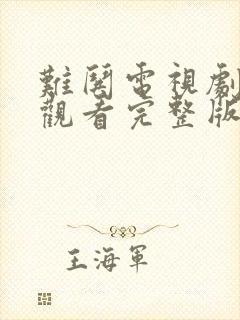 難鬨電視劇
觀看完整版
王海軍